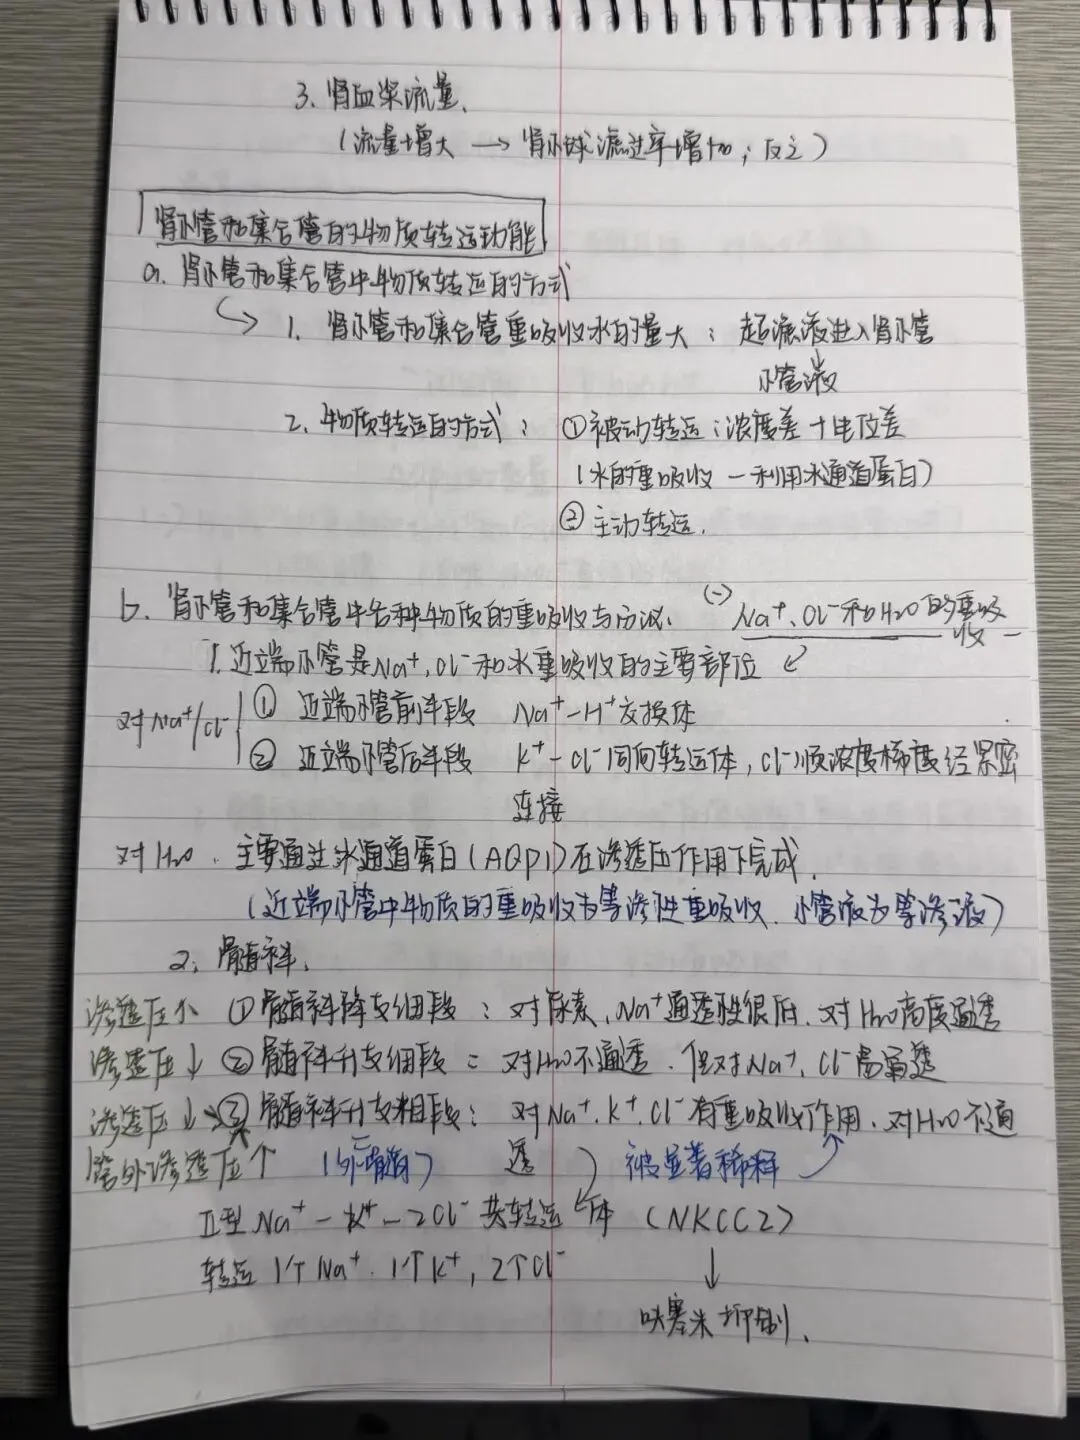 3、肾血浆流量、
(流量增大 → 肾小球滤过率增加；反之)
肾小管和集合管的物质转运功能
a. 肾小管和集合管中物质转运的方式
↳ 1. 肾小管和集合管重吸收水的量大：超滤液进入肾小管
↓
小管液
2、物质转运的方式：①被动转运：浓度差+电位差
(水的重吸收—利用水通道蛋白)
②主动转运.
b. 肾小管和集合管中各种物质的重吸收与分泌. (一) Na⁺、Cl⁻和H₂O的重吸收
1. 近端小管是Na⁺, Cl⁻和水重吸收的主要部位
对Na⁺/Cl⁻ ① 近端小管前半段 Na⁺-H⁺交换体
② 近端小管后半段 K⁺-Cl⁻同向转运体, Cl⁻顺浓度梯度经紧密
连接
对H₂O. 主要通过水通道蛋白(AQP1)在渗透压作用下完成.
(近端小管中物质的重吸收为等渗性重吸收. 小管液为等渗液)
2、髓袢、
渗透压个 ①髓袢降支细段：对尿素, Na⁺通透性很低. 对H₂O高度通透
渗透压↓ ②髓袢升支细段：对H₂O不通透. 但对Na⁺, Cl⁻易通透
渗透压↓ ③髓袢升支粗段：对Na⁺. K⁺. Cl⁻有重吸收作用. 对H₂O不通
管外渗透压↑ (外髓) 透 被显著稀释
II型Na⁺-K⁺-2Cl⁻共转运体 (NKCC2)
转运1个Na⁺. 1个K⁺, 2个Cl⁻ ↓
呋塞米抑制.